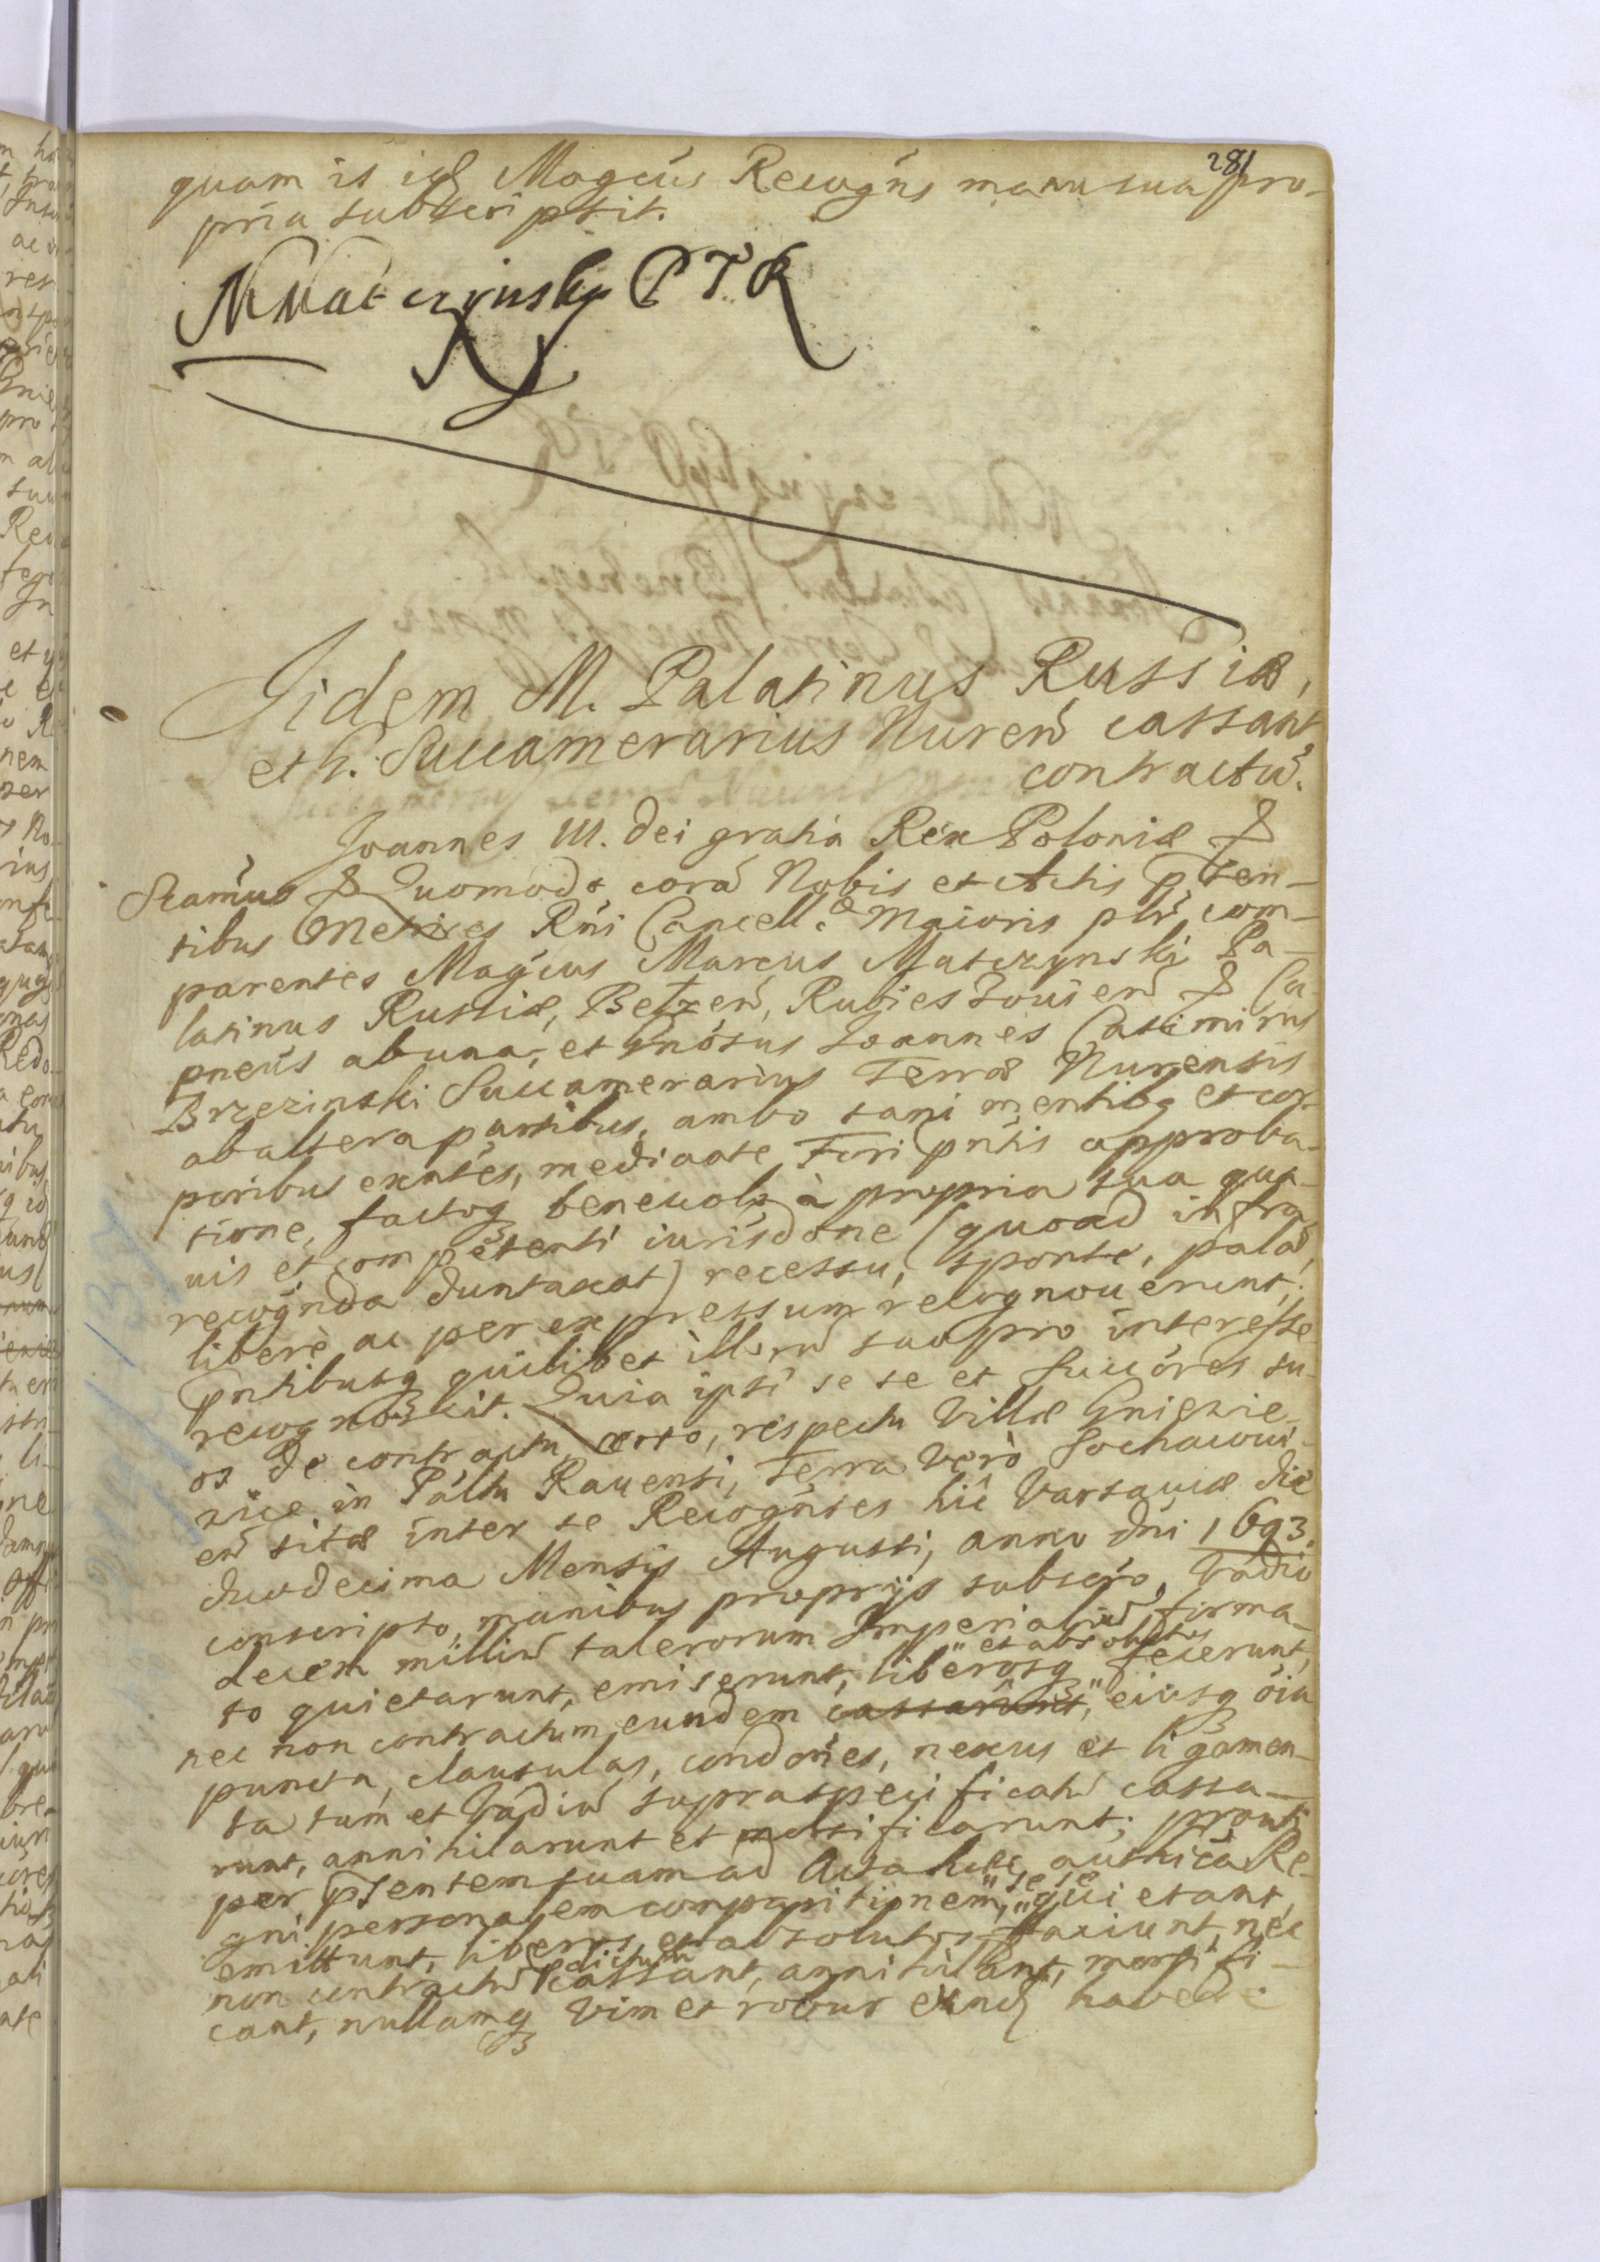 281
quam is id Magcus Recogns manu sua pro-
pria subscripsit.
MMatczynsky P T R
Iidem M. Palatinus Russiæ,
et G. Succamerarius Nureñ cassant
contractũ.
Joannes III. Dei gratia Rex Poloniæ &
Scamus & Quomodo corã Nobis et Actis pñsen-
tibus Metrices Rñi Cancell. Maioris plr com-
parentes Magcus Marcus Matczynski Pa-
latinus Russiæ, Betzeñ, Rubieszouieñ & Ca-
pneus ab una, et Gnosus Joannes Casimirus
Brzezinski Succamerarius Terræ Nurensis
ab altera partibus, ambo sani mentibq et cor-
poribus exñtes, mediante Fori pñtis approba-
tione, factoq beneuole à propria sua qua-
uis et competenti iurisdone (quoad infra
recognda duntaxat) recessu, sponte, palã,
liberè ac per expressum recognouerunt;
pñtibusq quilibet illorũ suo pro interesse
recognoscit. Quia ipsi se se et succores su-
os de contractu certo, respectu Villæ Gniewie-
wice in Paltu Rauensi, Terra verò Sochacoui-
eñ sitæ inter se Recogntes hic Varsauiæ die
duodecima Mensis Augusti, anno dni 1693.
conscripto, manibus proprijs subscro, Vadio
decem milliũ talerorum Imperialiũ firma-
to quietarunt, emiserunt, liberosq "et absolutos fecerunt,
nec non contractum eundem cassarunt, eiusq oia
puncta, clausulas, condones, nexus et ligamen-
ta tum et Vadiũ supraspecificatũ cassa-
runt, annihilarunt et mortificarunt; prout
per pñsentem suam ad Acta hæc authca Re-
gni personalem comparitionem, "se se" quietant,
emittunt, liberos et absolutos faciunt, nec
non contractũ pdictum cassant, annihilant, mortifi-
cant, nullamq vim et robur exnc habere